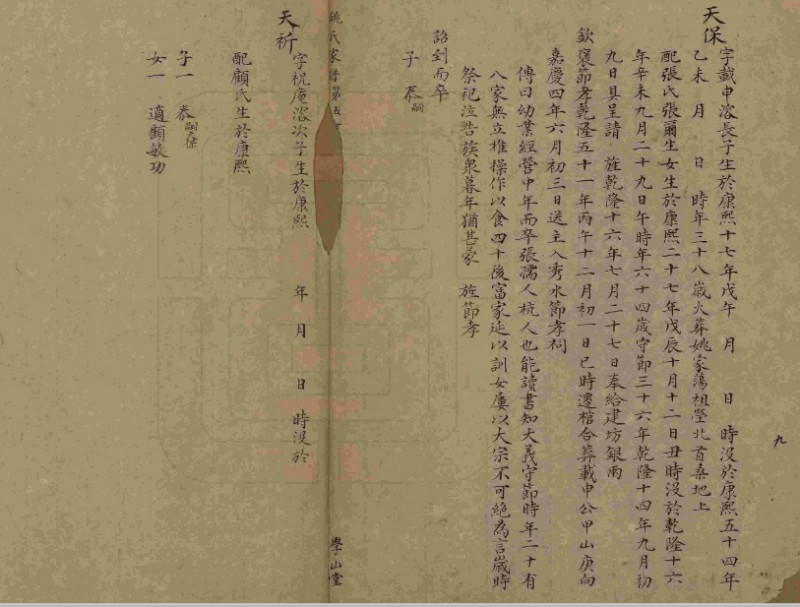 九
天保
字載申溶長子生於康熙十七年戊午 月 日 時沒於康熙五十四年
乙未 月 日 時年三十八歲火葬姚家蕩祖塋北首桑地上
配張氏張爾生女生於康熙二十七年戊辰十月十二日丑時沒於乾隆十六
年辛未九月二十九日午時年六十四歲守節三十六年乾隆十四年九月初
九日具呈請 旌乾隆十六年七月二十七日奉給建坊銀兩
欽褒節孝乾隆五十一年丙午十二月初一日巳時遷棺合葬載申公甲山庚向
嘉慶四年六月初三日送主入秀水節孝祠
傳曰幼業經營中年而卒張孺人杭人也能讀書知大義守節時年二十有
八家無立椎操作以食四十後富家延以訓女屢以大宗不可絕為言歲時
祭祀泣告族衆暮年猶甚蒙 旌節孝
詔到而卒
子 泰嗣
姚氏家譜第五
學山堂
天祈
字祝庵溶次子生於康熙 年 月 日 時沒於
配顧氏生於康熙
子一 泰嗣天保
女一 適顧敏功